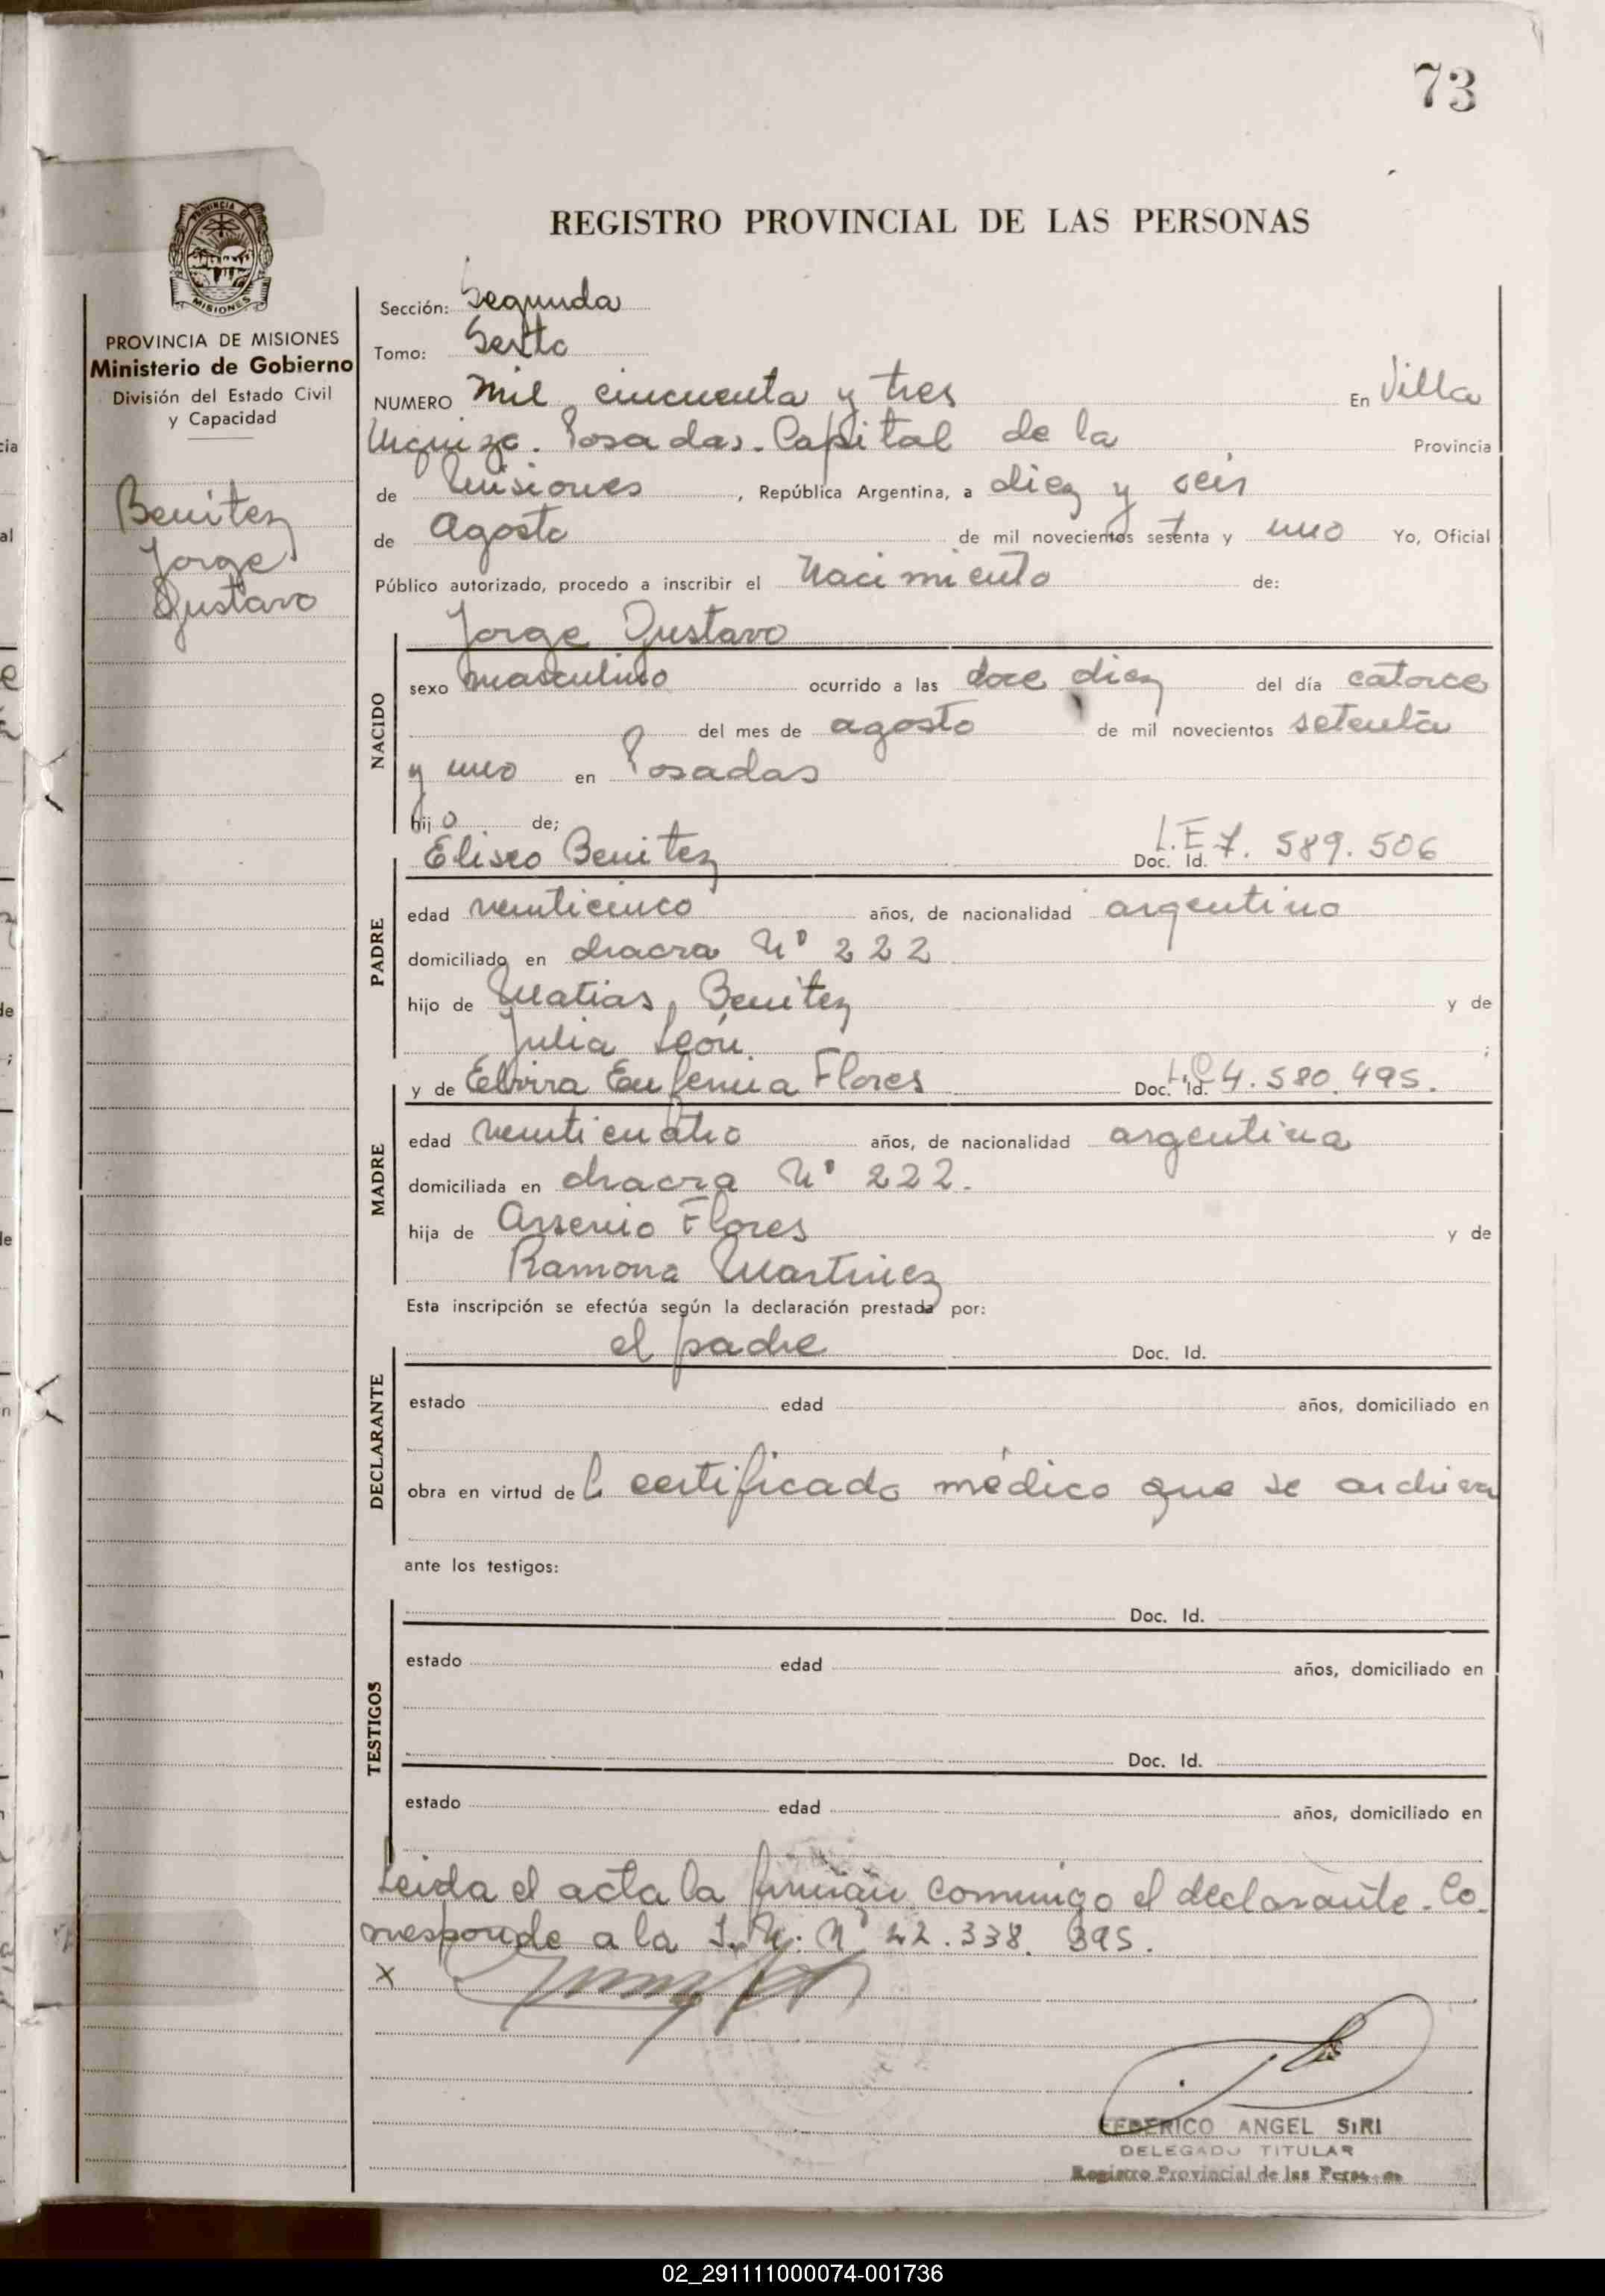 73
REGISTRO PROVINCIAL DE LAS PERSONAS
PROVINCIA DE
MISIONES
PROVINCIA DE MISIONES
Ministerio de Gobierno
División del Estado Civil
y Capacidad
Benitez
Jorge
Gustavo
Sección: Segunda
Tomo: Sexto
NUMERO Mil cincuenta y tres En Villa
Urquiza. Posadas. Capital de la Provincia
de Misiones, República Argentina, a diez y seis
de Agosto de mil novecientos setenta y uno Yo, Oficial
Público autorizado, procedo a inscribir el Nacimiento de:
Jorge Gustavo
NACIDO
sexo masculino ocurrido a las doce diez del día catorce
del mes de agosto de mil novecientos setenta
y uno en Posadas
hijo de;
Eliseo Benitez Doc. Id. L.E 7. 589. 506
PADRE
edad veinticinco años, de nacionalidad argentino
domiciliado en chacra Nº 222
hijo de Matias Benitez y de
Julia León. ;
y de Elvira Eufemia Flores Doc. Id. L.C 4. 580. 495.
MADRE
edad veinticuatro años, de nacionalidad argentina
domiciliada en chacra Nº 222.
hija de Arsenio Flores y de
Ramona Martinez
Esta inscripción se efectúa según la declaración prestada por:
el padre Doc. Id.
DECLARANTE
estado edad años, domiciliado en
obra en virtud del certificado médico que se archiva
ante los testigos:
Doc. Id.
TESTIGOS
estado edad años, domiciliado en
Doc. Id.
estado edad años, domiciliado en
Leida el acta la firman conmigo el declarante. Co
rresponde a la I. N. Nº 22. 338. 395.
x
FEDERICO ANGEL SIRI
DELEGADO TITULAR
Registro Provincial de las Personas
02_291111000074-001736